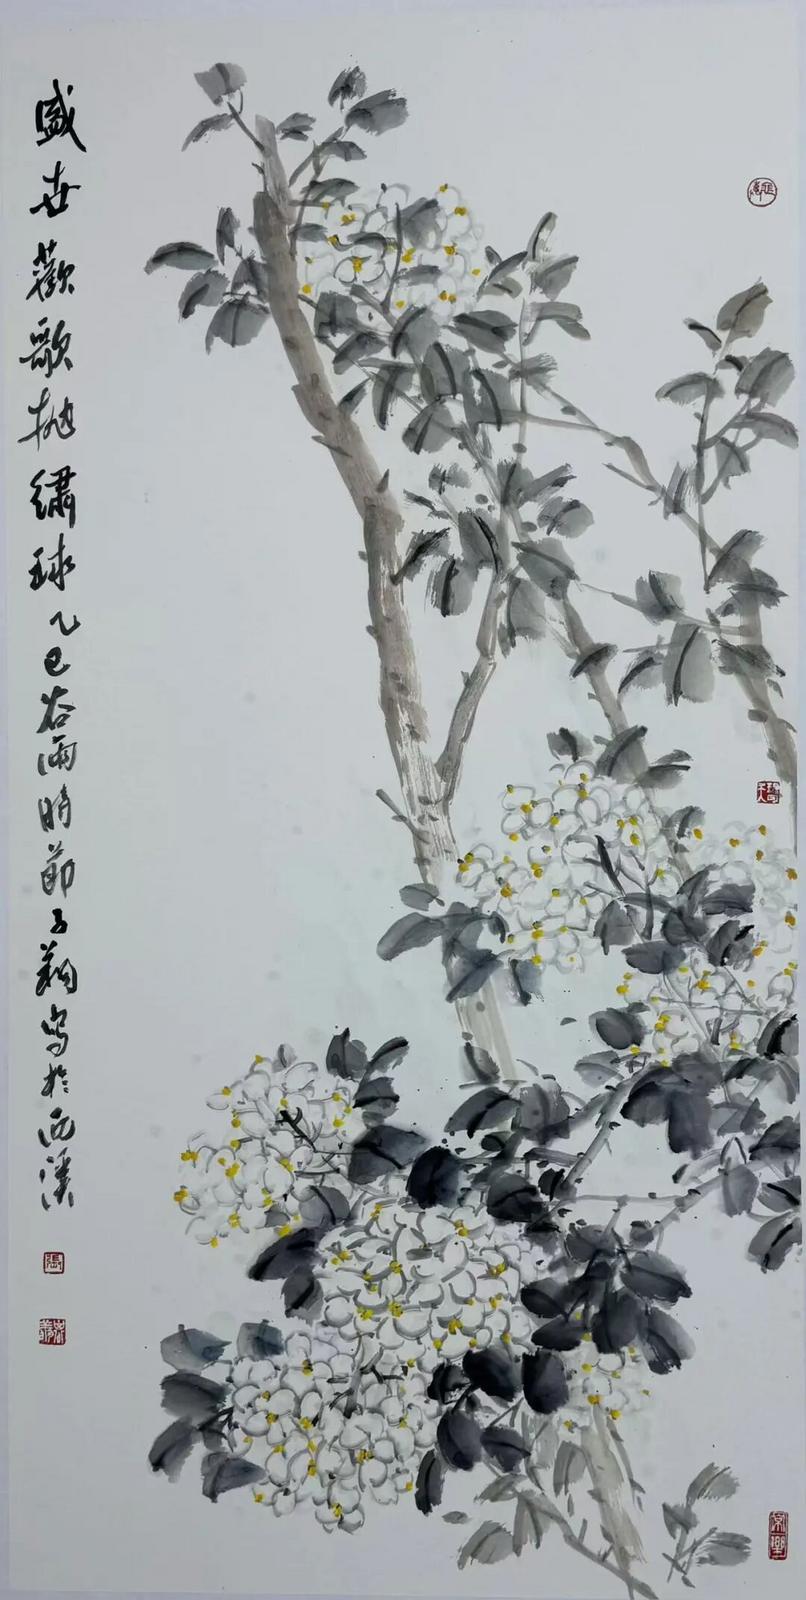 盛世歡歌抛繡球乙巳谷雨時節子翔寫於西溪
張